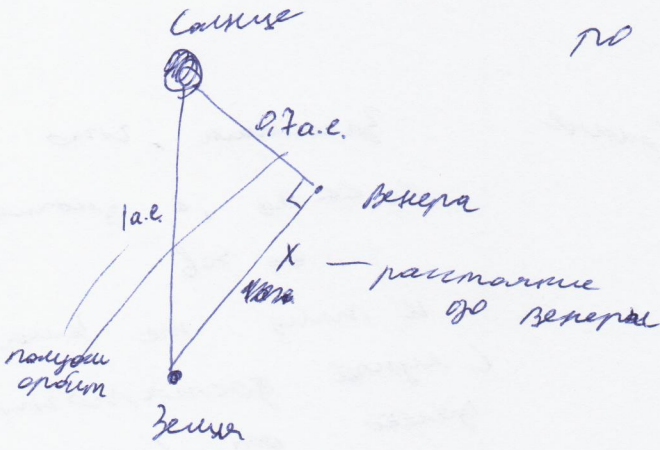 Солнце
по
0,7 а.е.
1 а.е.
Венера
X — расстояние
до Венеры
полуоси
орбит
Земля